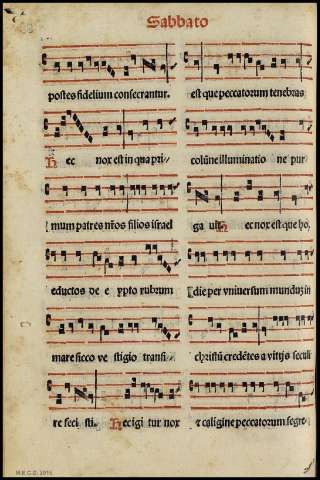 Sabbato
postes fidelium consecrantur.
Hec nox est in qua pri/
mum patres nr̃os filios israel
eductos de e ypto rubrum
mare sicco ve stigio transi/
re feci sti. Hec igi tur nox
est que peccatorum tenebras
colũne illuminatio ne pur
ga uit. Hec nox est que ho,
die per vniuersum mundũ in
christũ credẽtes a vitijs seculi
⁊ caligine peccatorum segre